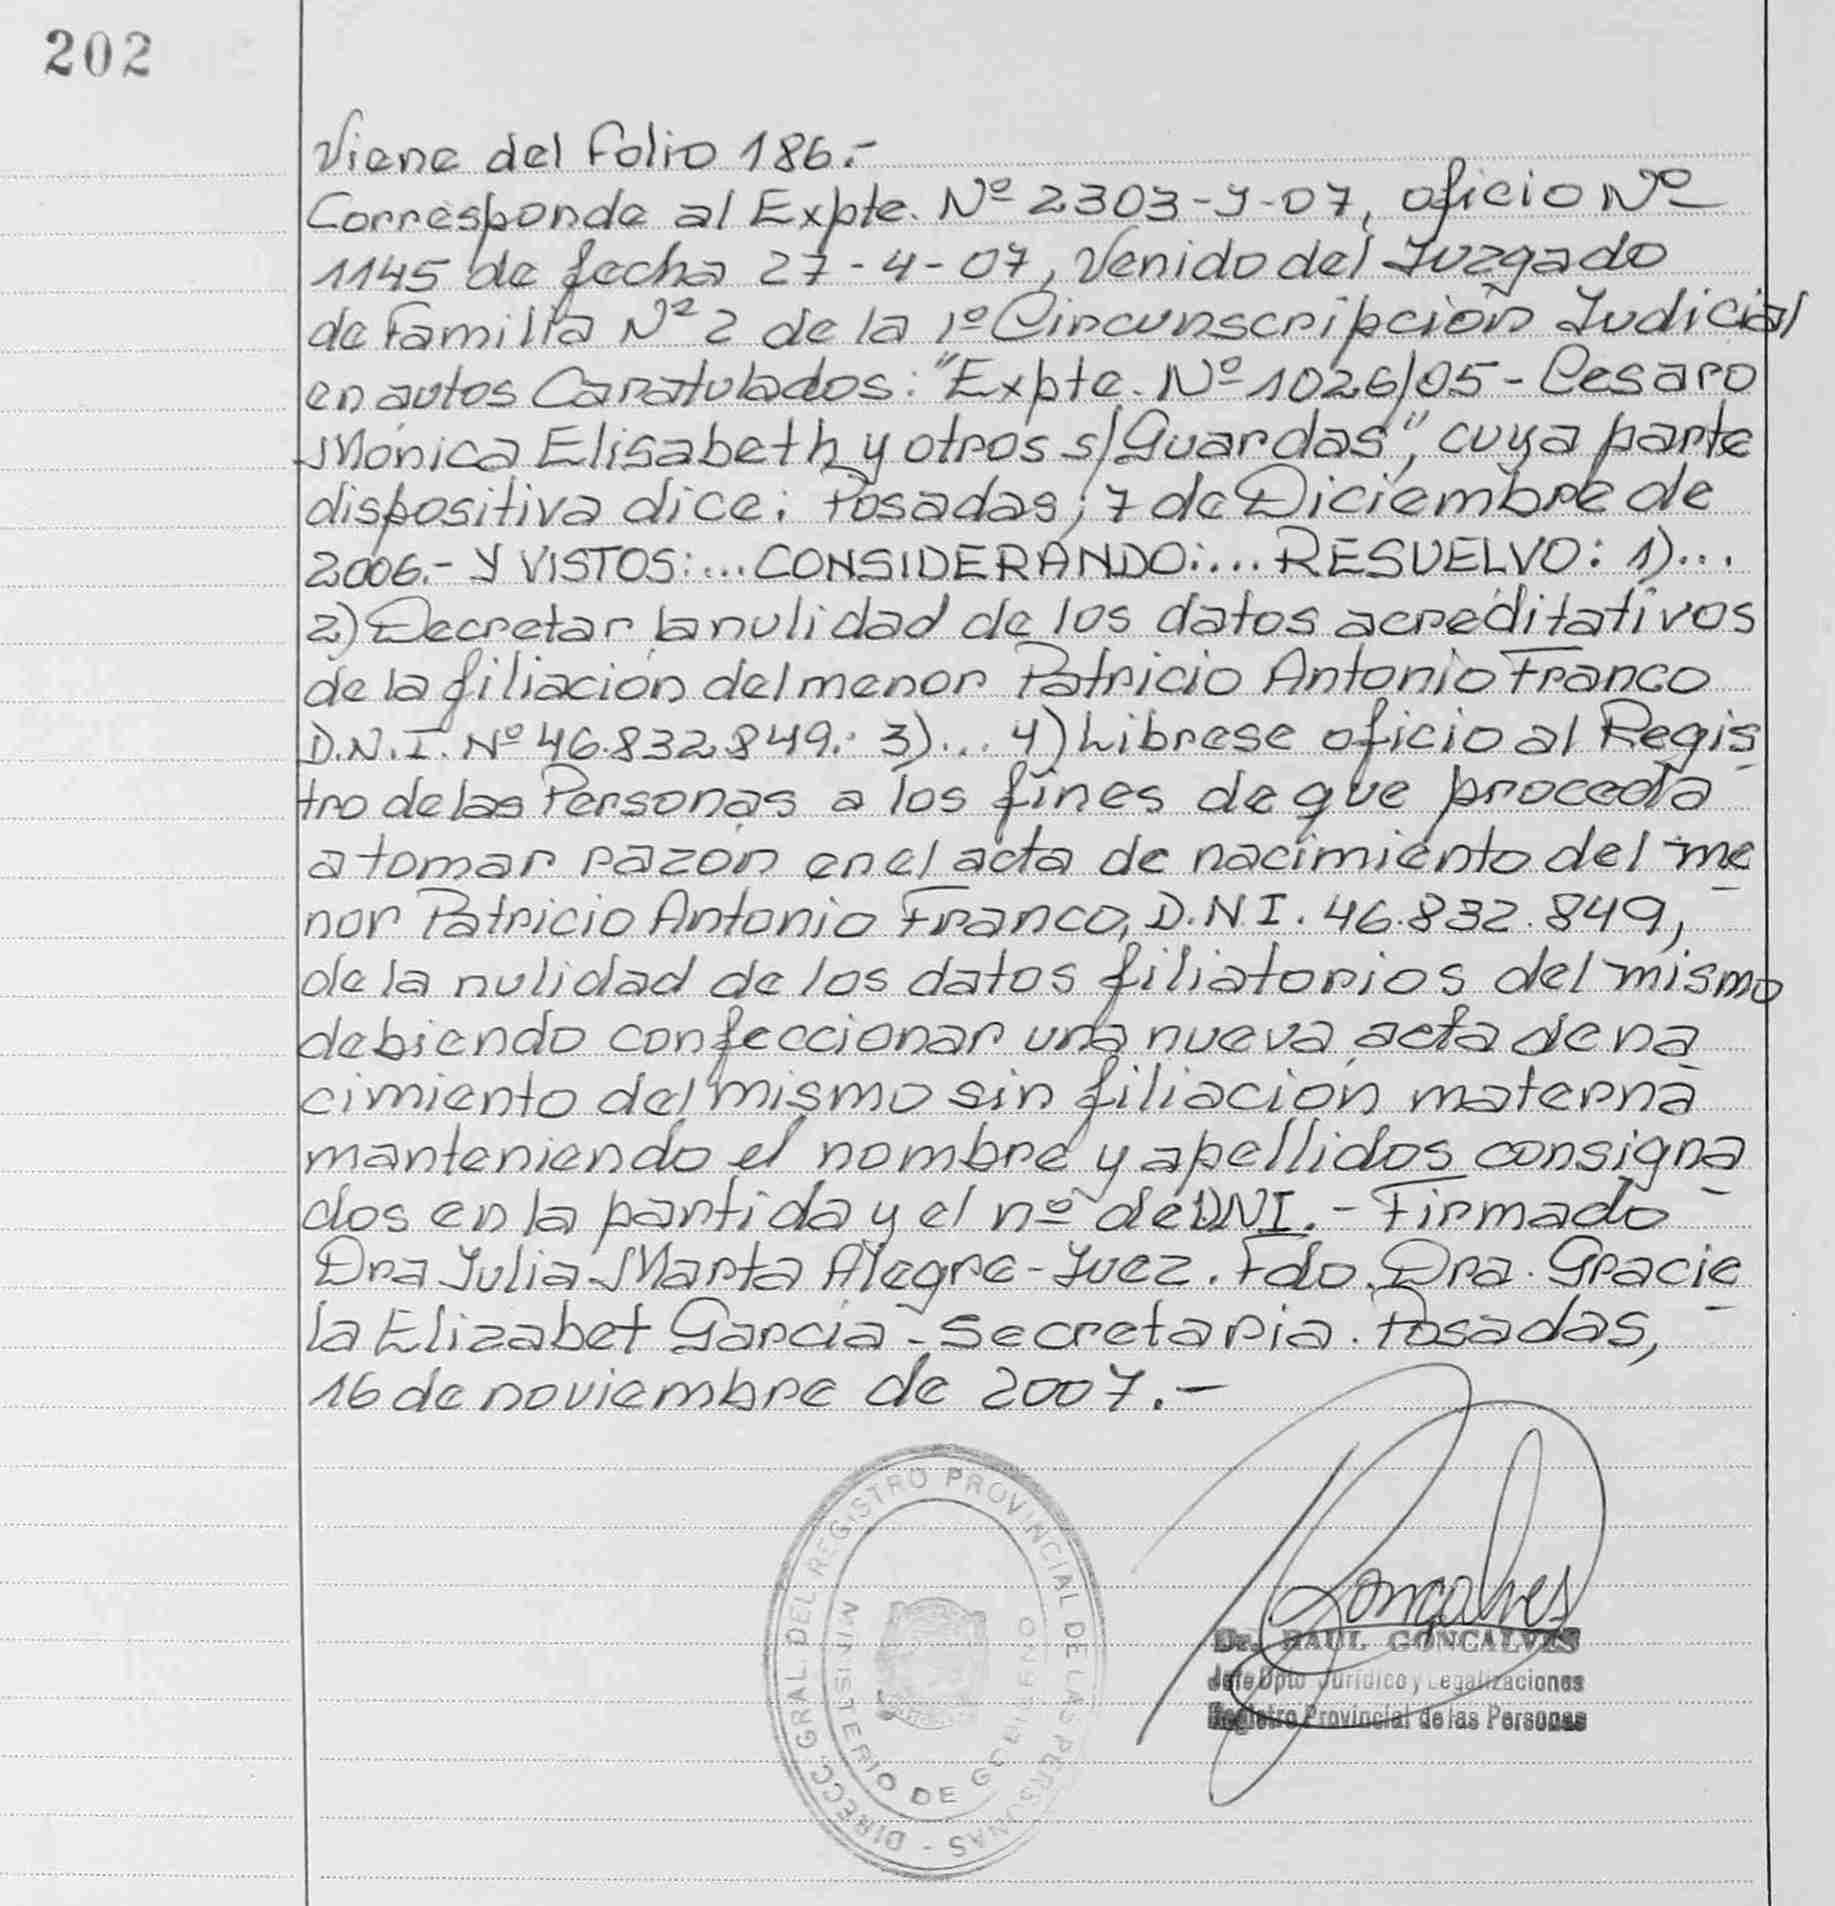 202
Viene del Folio 186.-
Corresponde al Expte. Nº 2303-J-07, oficio Nº
1145 de fecha 27-4-07, Venido del Juzgado
de Familia Nº 2 de la 1º Circunscripción Judicial
en autos Caratulados: "Expte. Nº 1026/05 - Cesaro
Mónica Elisabeth y otros s/ Guardas", cuya parte
dispositiva dice: Posadas, 7 de Diciembre de
2006.- Y VISTOS:... CONSIDERANDO:... RESUELVO: 1)...
2) Decretar la nulidad de los datos acreditativos
de la filiación del menor Patricio Antonio Franco
D.N.I. Nº 46.832.849.- 3)... 4) Librese oficio al Regis
tro de las Personas a los fines de que proceda
a tomar razón en el acta de nacimiento del me
nor Patricio Antonio Franco, D.N.I. 46.832.849,
de la nulidad de los datos filiatorios del mismo
debiendo confeccionar una nueva acta de na
cimiento del mismo sin filiación materna
manteniendo el nombre y apellidos consigna
dos en la partida y el nº de DNI.- Firmado
Dra Julia Marta Alegre - Juez. Fdo. Dra. Gracie
la Elizabet García - Secretaria. Posadas,
16 de noviembre de 2007.-
DIRECC. GRAL. DEL REGISTRO PROVINCIAL DE LAS PERSONAS -
MINISTERIO DE GOBIERNO
Goncalves
Dr. RAUL GONCALVES
Jefe Dpto Jurídico y Legalizaciones
Registro Provincial de las Personas